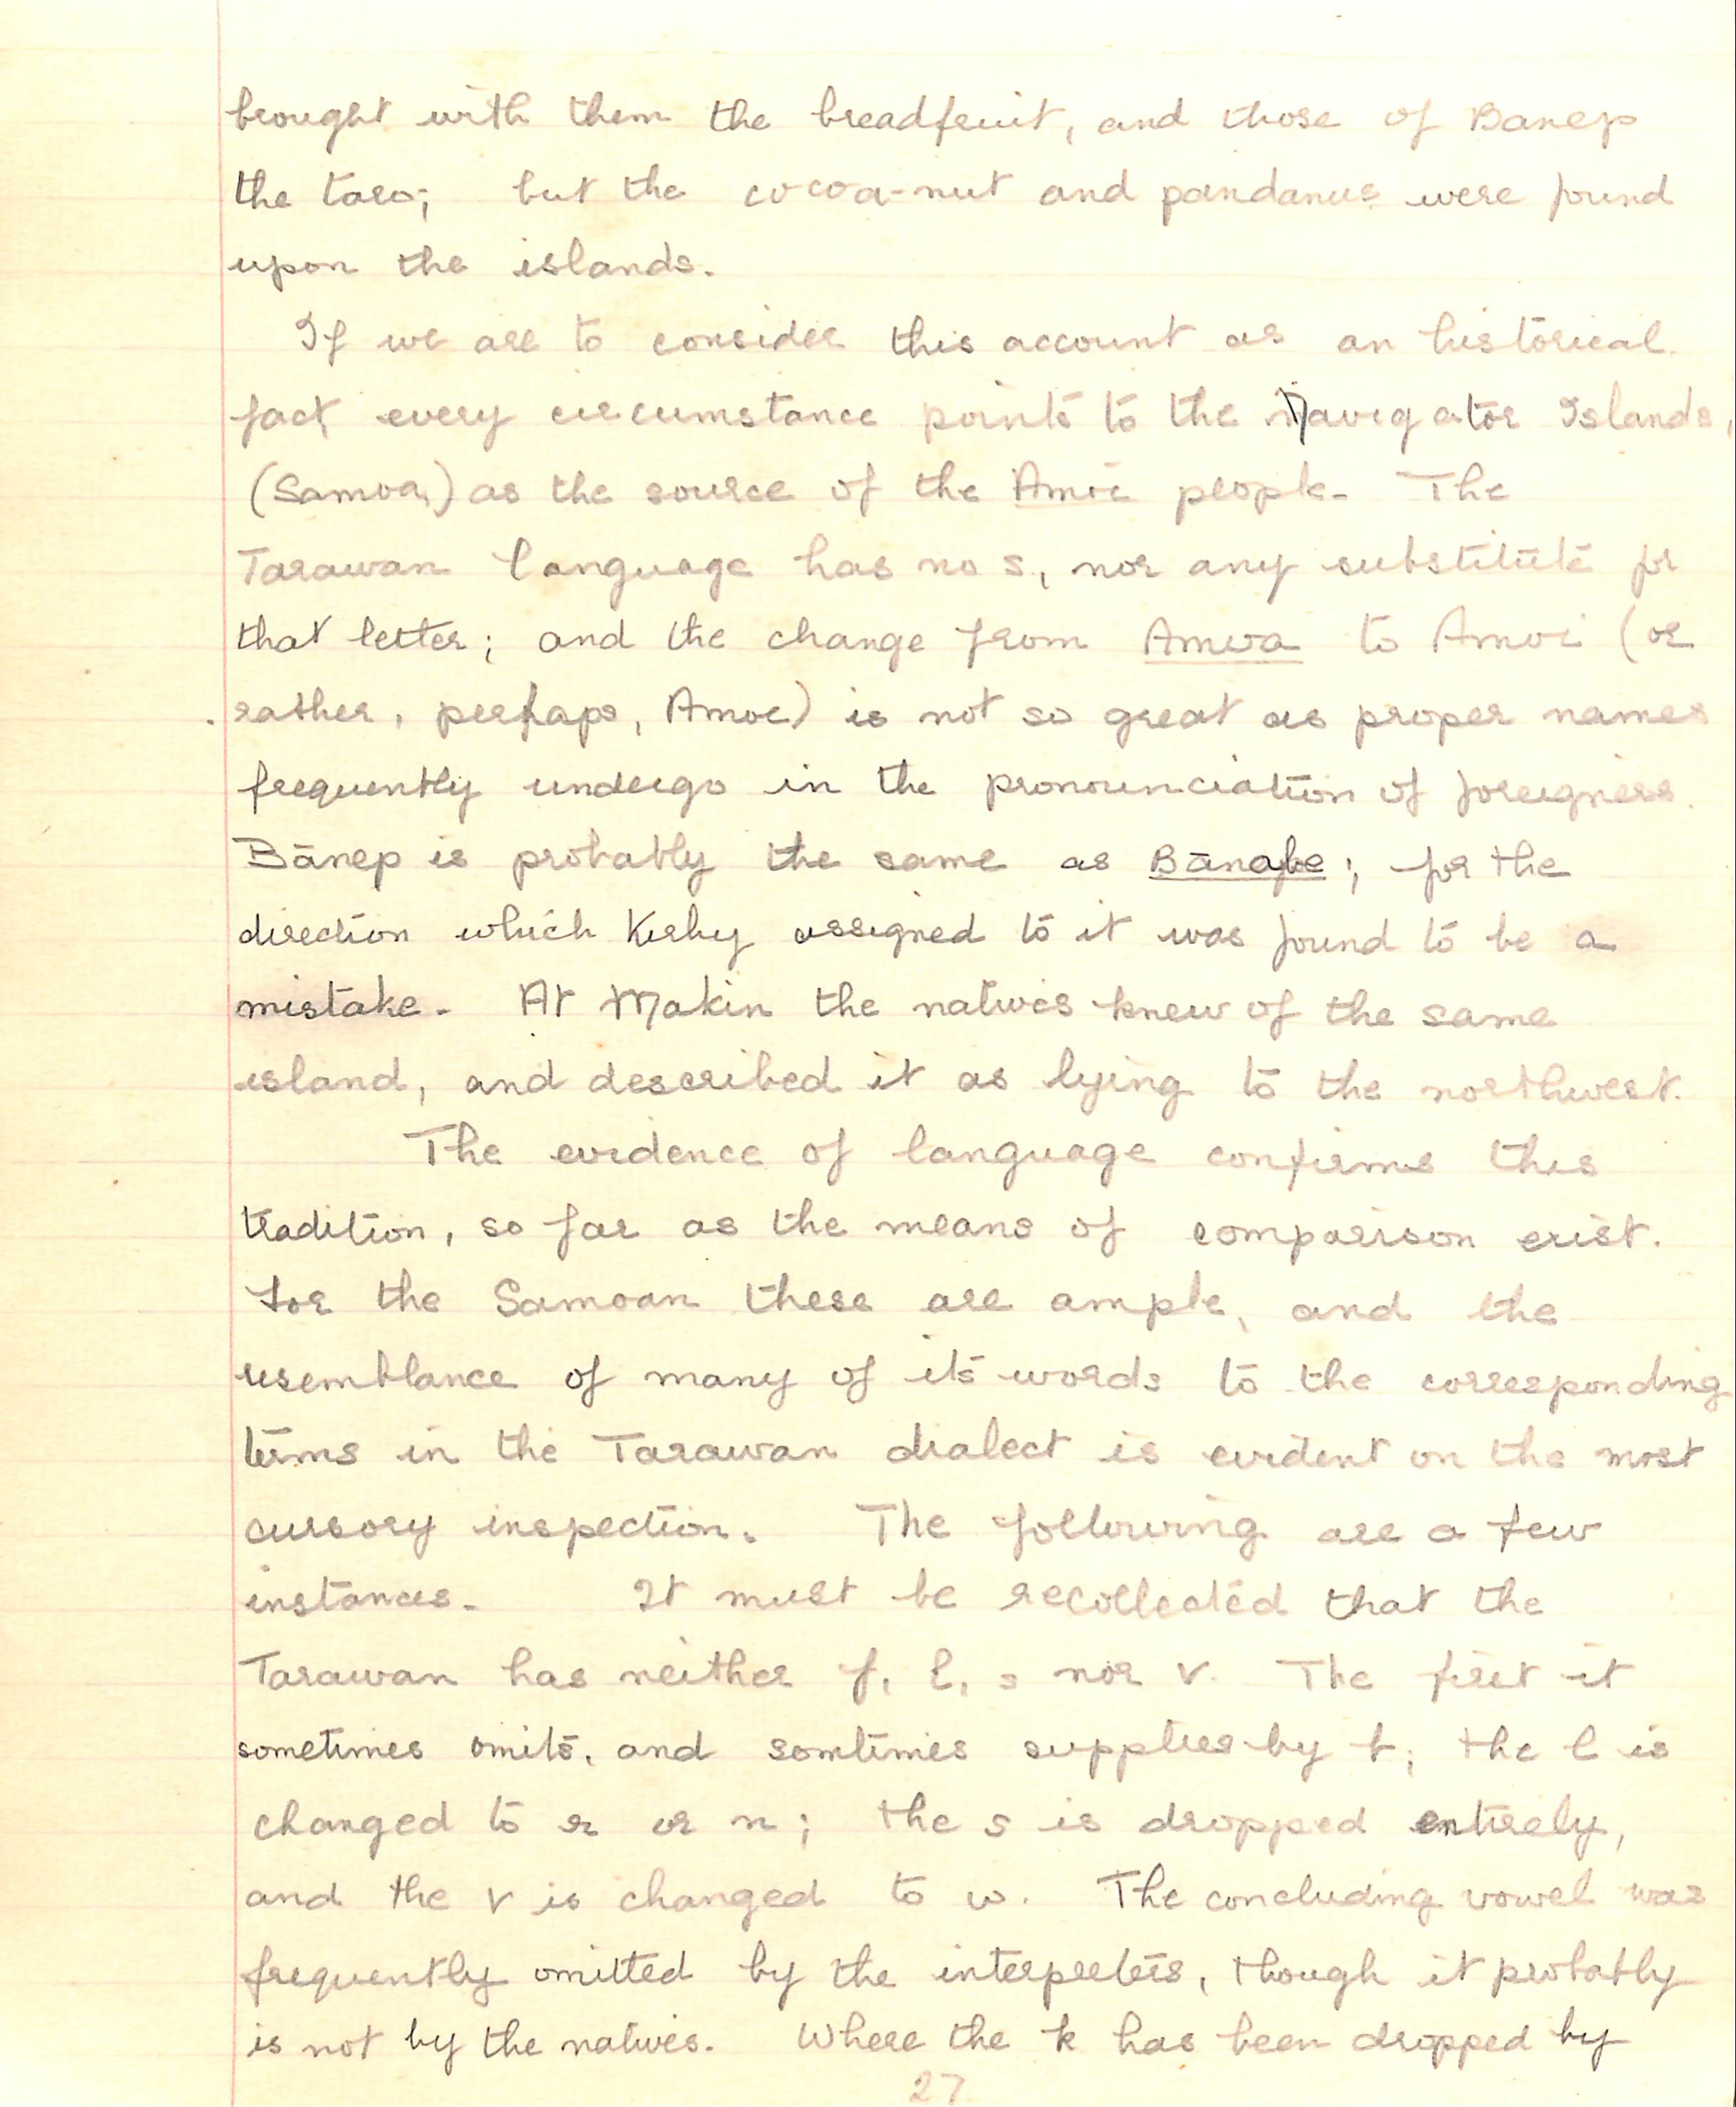 brought with them the breadfruit, and those of Banep
the taro; but the cocoa-nut and pandanus were found
upon the islands.
If we are to consider this account as an historical
fact every circumstance points to the Navigator Islands,
(Samoa) as the source of the Amoi people. The
Tarawan language has no s, nor any substitute for
that letter; and the change from Amoa to Amoi (or
rather, perhaps, Amoe) is not so great as proper names
frequently undergo in the pronounciation of foreigners.
Bānep is probably the same as Bānabe; for the
direction which Kirby assigned to it was found to be a
mistake. At Makin the natives knew of the same
island, and described it as lying to the northwest.
The evidence of language confirms this
tradition, so far as the means of comparison exist.
For the Samoan these are ample, and the
resemblance of many of its words to the corresponding
terms in the Tarawan dialect is evident on the most
cursory inspection. The following are a few
instances. It must be recollected that the
Tarawan has neither f, l, s nor v. The first it
sometimes omits, and somtimes supplies by b; the l is
changed to r or n; the s is dropped entirely,
and the v is changed to w. The concluding vowel was
frequently omitted by the interpreters, though it probably
is not by the natives. Where the k has been dropped by
27